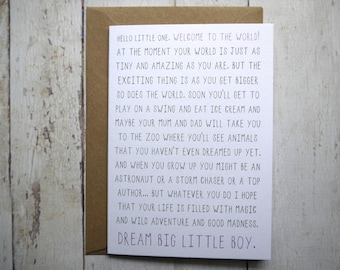 HELLO LITTLE ONE. WELCOME TO THE WORLD!
AT THE MOMENT YOUR WORLD IS JUST AS
TINY AND AMAZING AS YOU ARE. BUT THE
EXCITING THING IS AS YOU GET BIGGER
SO DOES THE WORLD. SOON YOU'LL GET TO
PLAY ON A SWING AND EAT ICE CREAM AND
MAYBE YOUR MUM AND DAD WILL TAKE YOU
TO THE ZOO WHERE YOU'LL SEE ANIMALS
THAT YOU HAVEN'T EVEN DREAMED UP YET.
AND WHEN YOU GROW UP YOU MIGHT BE AN
ASTRONAUT OR A STORM CHASER OR A TOP
AUTHOR... BUT WHATEVER YOU DO I HOPE
THAT YOUR LIFE IS FILLED WITH MAGIC
AND WILD ADVENTURE AND GOOD MADNESS.
DREAM BIG LITTLE BOY.